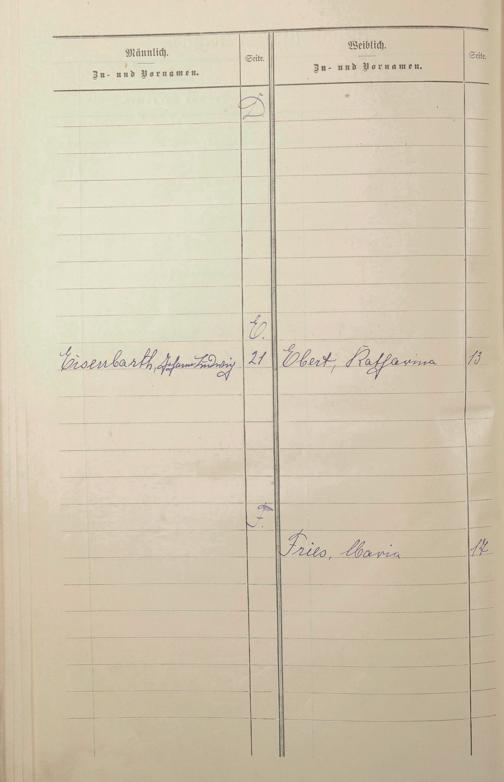 Männlich.
Zu- und Vornamen.
Seite.
Weiblich.
Zu- und Vornamen.
Seite.
D
E.
Eisenbarth, Johann Ludwig 21 Ebert, Katharina 13
F.
Fries, Maria 17